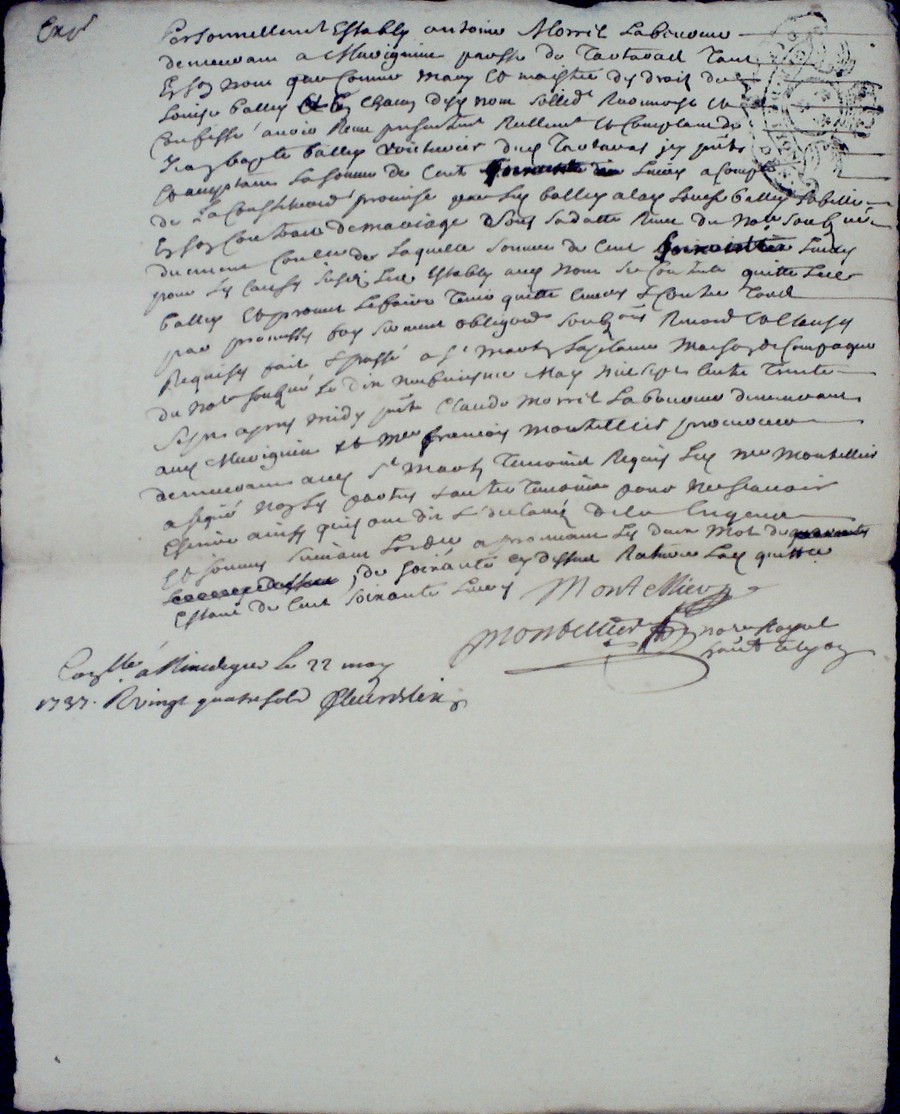 Exp.
Personnellement Estably antoine Morril Laboureur
demeurant a Mavignieu parsse de Tartaras Tant
En son nom que Comme mary Et maistre des droit de
Louise balley Et En Chacun desd nom sollid. Recognoist Et
Confesse avoir Reeu presentement Reellement Et Comptant de
Jean baptte balley voiturier dud Tartaras icy pnt
Et acceptant La somme de Cent Livres a Compte
de La Constitution promise par Led balley a lad Louise balley sa fille
En son Contract de mariage Sous sa datte Reeu du Not.
de Laquelle somme de Cent Livres
pour Les Causes susd Led Estably aud Nom se Contente quitte Led
balley Et promet Le faire Tenir quitte Envers Et Contre Tous
par promesses foy serment obligaon Renonc Clauses
Requises fait Et passé a St Martin La plaine Maison de Campagne
du Not. Le Dix neufvieme May Mil sept Cents Trente
sept apres midy pnts Claude Morril Laboureur demeurant
aud Mavignieu Et Me francois Montellier procureur
demeurant aud St Martin Temoins Requis Led Me Montellier
a signé Non Les parties Et autre Temoin pour Ne scavoir
Ecrire ainsi quils ont dit Et declaré De ce Enquis
Et sommes suivant Lordce approuvant Les deux Mot de
de soixante cy dessus Rature Lad quittce
Estant de Cent soixante Livres
Montellier
Montellier nore Royal
Conlé a Rivedegier le 22 may
1737. R vingt quatre sols fleurdelix